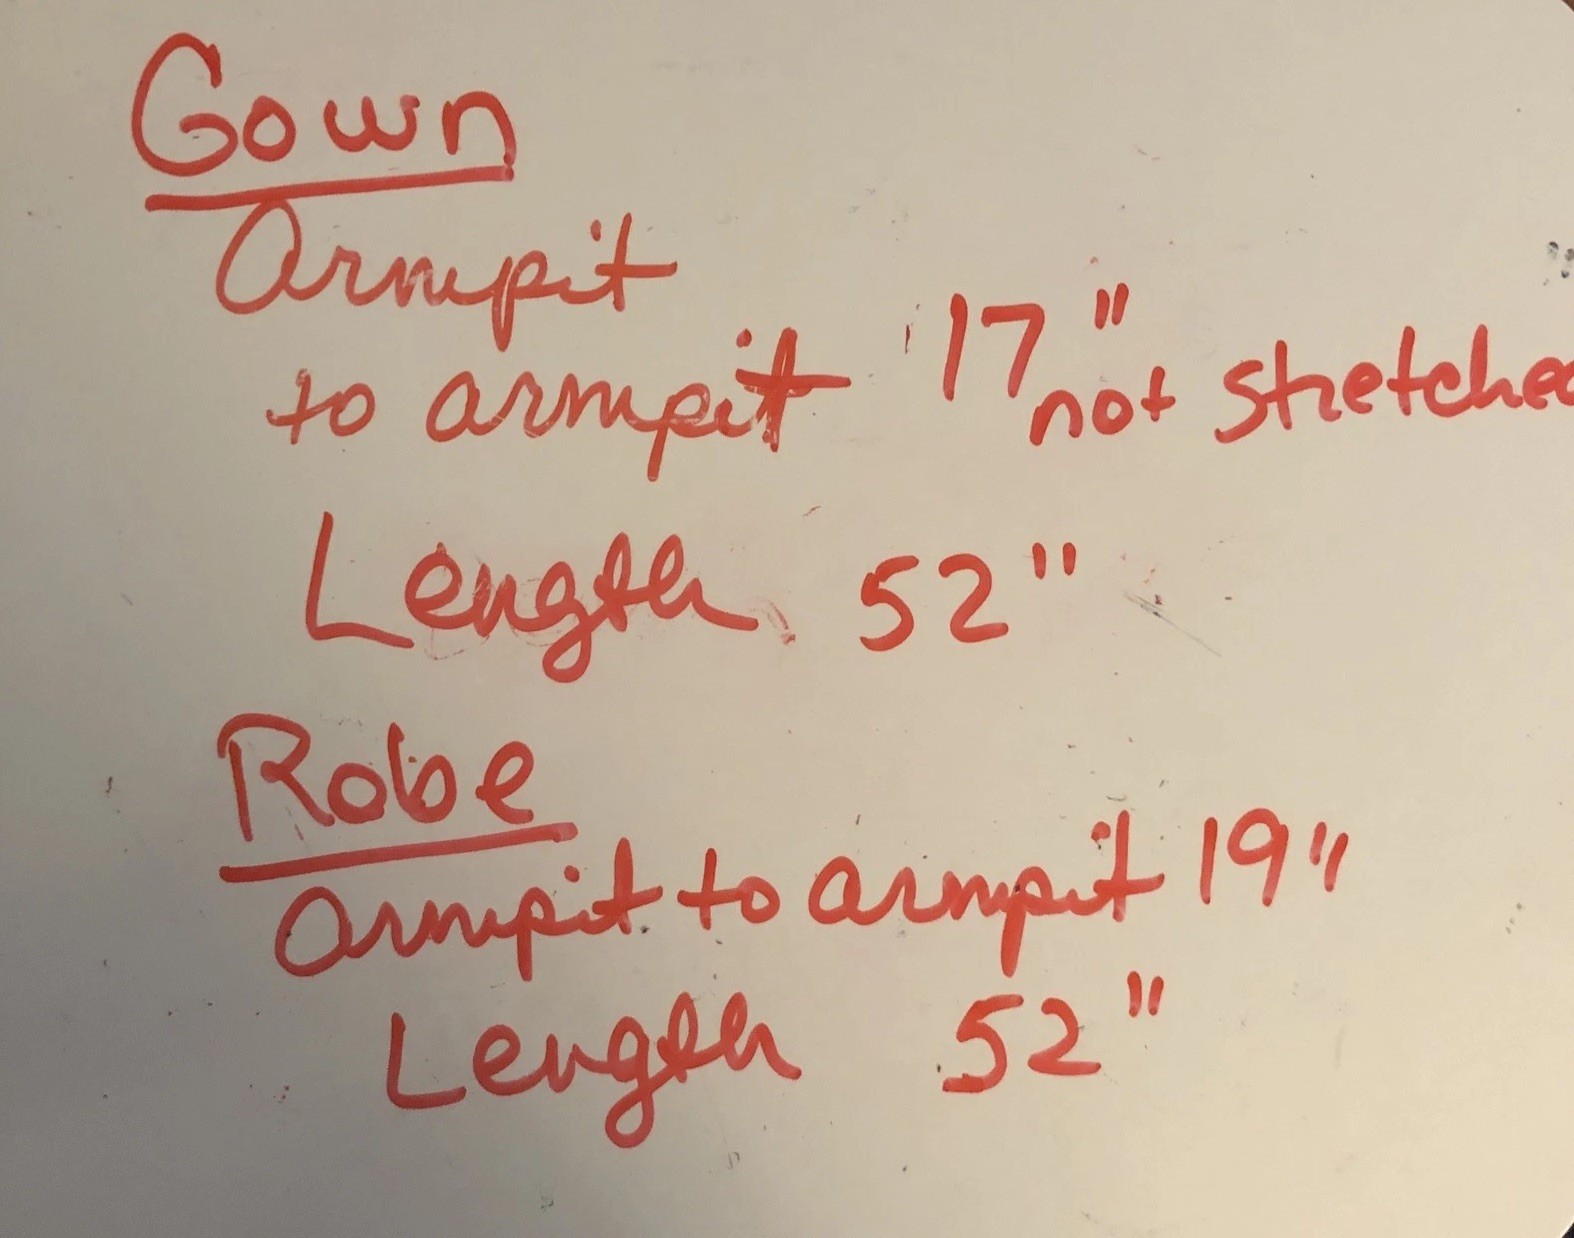 Gown
Armpit
to armpit 17" not stretched
Length 52"
Robe
armpit to armpit 19"
Length 52"